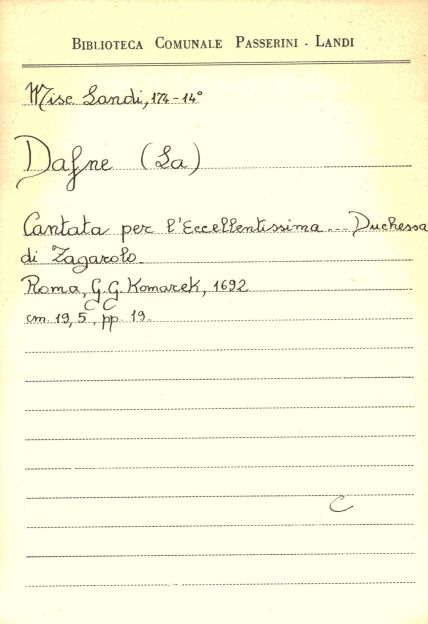 BIBLIOTECA COMUNALE PASSERINI - LANDI
Misc Landi, 174-14°
Dafne (La)
Cantata per l'Eccellentissima... Duchessa
di Zagarolo.
Roma, G.G. Komarek, 1692
cm. 19,5, pp. 19.
C